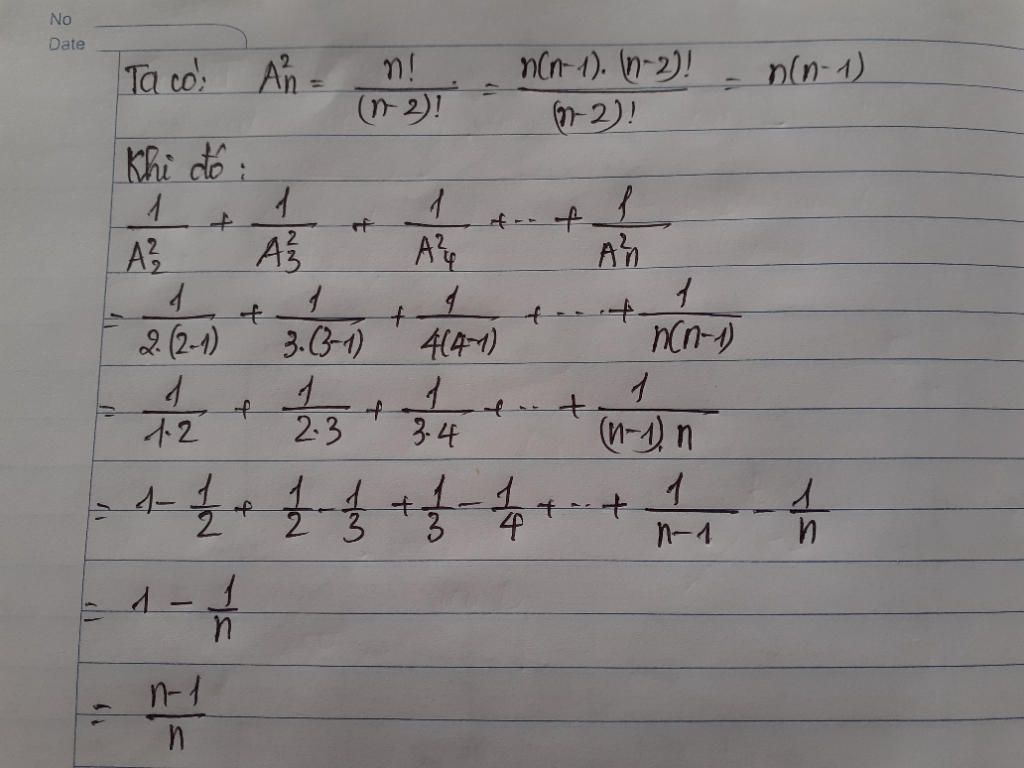 No
Date
Ta có: A²ₙ = n!/(n-2)! = n(n-1).(n-2)!/(n-2)! = n(n-1)
Khi đó:
1/A²₂ + 1/A²₃ + 1/A²₄ + ... + 1/A²ₙ
= 1/2.(2-1) + 1/3.(3-1) + 1/4(4-1) + .... + 1/n(n-1)
= 1/1.2 + 1/2.3 + 1/3.4 + ... + 1/(n-1).n
= 1 - 1/2 + 1/2 - 1/3 + 1/3 - 1/4 + ... + 1/n-1 - 1/n
= 1 - 1/n
= n-1/n